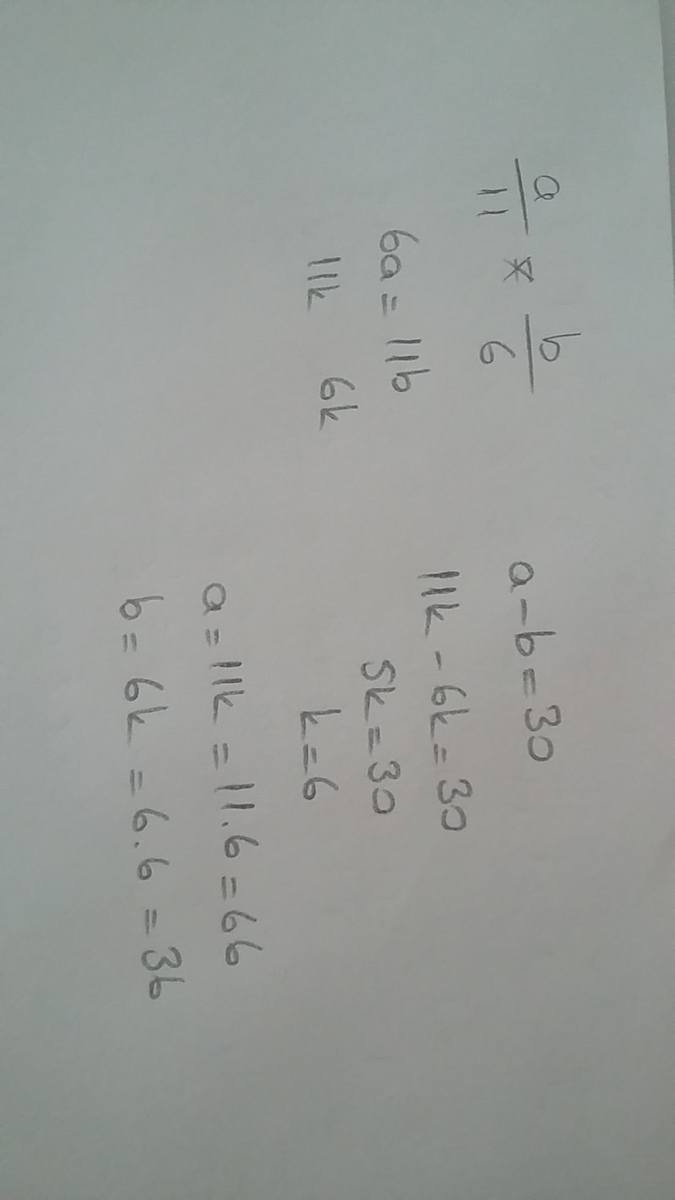 a/11 * b/6
6a = 11b
11k 6k
a - b = 30
11k - 6k = 30
5k = 30
k = 6
a = 11k = 11.6 = 66
b = 6k = 6.6 = 36